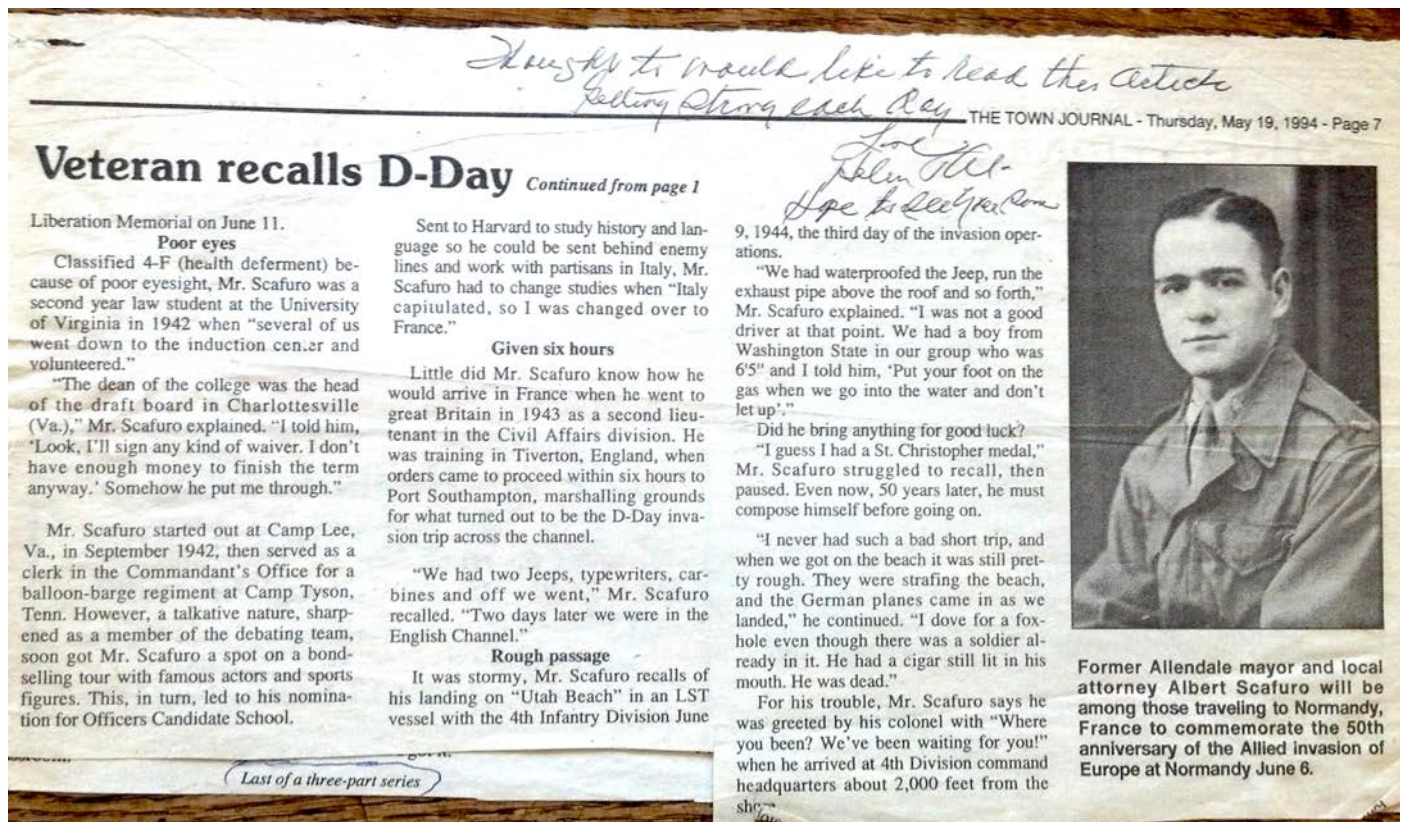 Thought to would like to read this article
Getting strong each day
Love
Helen
Hope to see you soon
THE TOWN JOURNAL - Thursday, May 19, 1994 - Page 7
Veteran recalls D-Day Continued from page 1
Liberation Memorial on June 11.
Poor eyes
Classified 4-F (health deferment) be-
cause of poor eyesight, Mr. Scafuro was a
second year law student at the University
of Virginia in 1942 when "several of us
went down to the induction center and
volunteered."
"The dean of the college was the head
of the draft board in Charlottesville
(Va.)," Mr. Scafuro explained. "I told him,
'Look, I'll sign any kind of waiver. I don't
have enough money to finish the term
anyway.' Somehow he put me through."
Mr. Scafuro started out at Camp Lee,
Va., in September 1942, then served as a
clerk in the Commandant's Office for a
balloon-barge regiment at Camp Tyson,
Tenn. However, a talkative nature, sharp-
ened as a member of the debating team,
soon got Mr. Scafuro a spot on a bond-
selling tour with famous actors and sports
figures. This, in turn, led to his nomina-
tion for Officers Candidate School.
Sent to Harvard to study history and lan-
guage so he could be sent behind enemy
lines and work with partisans in Italy, Mr.
Scafuro had to change studies when "Italy
capitulated, so I was changed over to
France."
Given six hours
Little did Mr. Scafuro know how he
would arrive in France when he went to
great Britain in 1943 as a second lieu-
tenant in the Civil Affairs division. He
was training in Tiverton, England, when
orders came to proceed within six hours to
Port Southampton, marshalling grounds
for what turned out to be the D-Day inva-
sion trip across the channel.
"We had two Jeeps, typewriters, car-
bines and off we went," Mr. Scafuro
recalled. "Two days later we were in the
English Channel."
Rough passage
It was stormy, Mr. Scafuro recalls of
his landing on "Utah Beach" in an LST
vessel with the 4th Infantry Division June
9, 1944, the third day of the invasion oper-
ations.
"We had waterproofed the Jeep, run the
exhaust pipe above the roof and so forth,"
Mr. Scafuro explained. "I was not a good
driver at that point. We had a boy from
Washington State in our group who was
6'5" and I told him, 'Put your foot on the
gas when we go into the water and don't
let up'."
Did he bring anything for good luck?
"I guess I had a St. Christopher medal,"
Mr. Scafuro struggled to recall, then
paused. Even now, 50 years later, he must
compose himself before going on.
"I never had such a bad short trip, and
when we got on the beach it was still pret-
ty rough. They were strafing the beach,
and the German planes came in as we
landed," he continued. "I dove for a fox-
hole even though there was a soldier al-
ready in it. He had a cigar still lit in his
mouth. He was dead."
For his trouble, Mr. Scafuro says he
was greeted by his colonel with "Where
you been? We've been waiting for you!"
when he arrived at 4th Division command
headquarters about 2,000 feet from the
Former Allendale mayor and local
attorney Albert Scafuro will be
among those traveling to Normandy,
France to commemorate the 50th
anniversary of the Allied invasion of
Europe at Normandy June 6.
Last of a three-part series